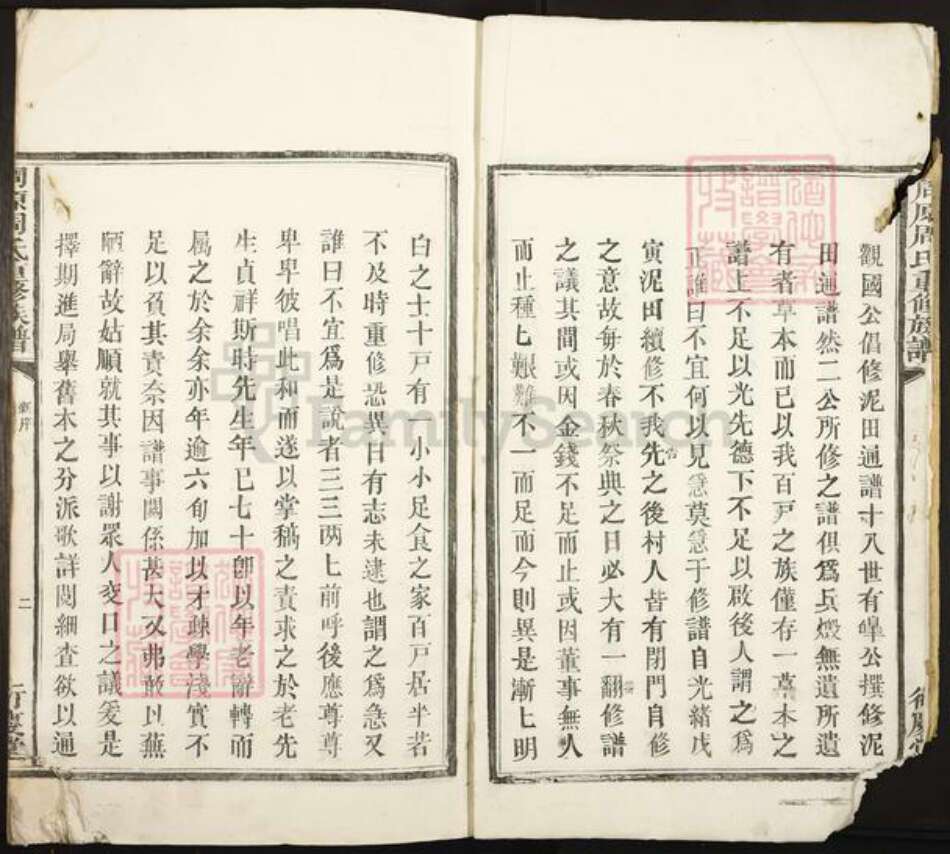 周原周氏重修族譜
觀國公倡修泥田通譜十八世有皥公撰修泥
田通譜然二公所修之譜俱爲兵燬無遺所遺
有者草本而已以我百戸之族僅存一草本之
譜上不足以光先德下不足以啟後人謂之爲
正誰曰不宜何以見急莫急于修譜自光緒戊
寅泥田續修不我先之後村人皆有閉門自修
之意故毎於春秋祭典之日必大有一翻修譜
之議其間或因金錢不足而止或因董事無人
而止種七艱難不一而足而今則異是漸七明
白之士十戸有 小小足食之家百戸居半若
不及時重修恐異日有志未逮也謂之爲急又
誰曰不宜爲是說者三三两七前呼後應尊尊
卑卑彼唱此和而遂以掌稿之責求之於老先
生貞祥斯時先生年已七十卽以年老辭轉而
屬之於余余亦年逾六旬加以才疎學淺實不
足以負其責奈因譜事關係甚大又弗敢以蕪
陋辭故姑順就其事以謝眾人交口之議爰是
擇期進局舉舊本之分派歌詳閱細查欲以通
周原周氏重修族譜
新序
二
衍慶堂
FamilySearch